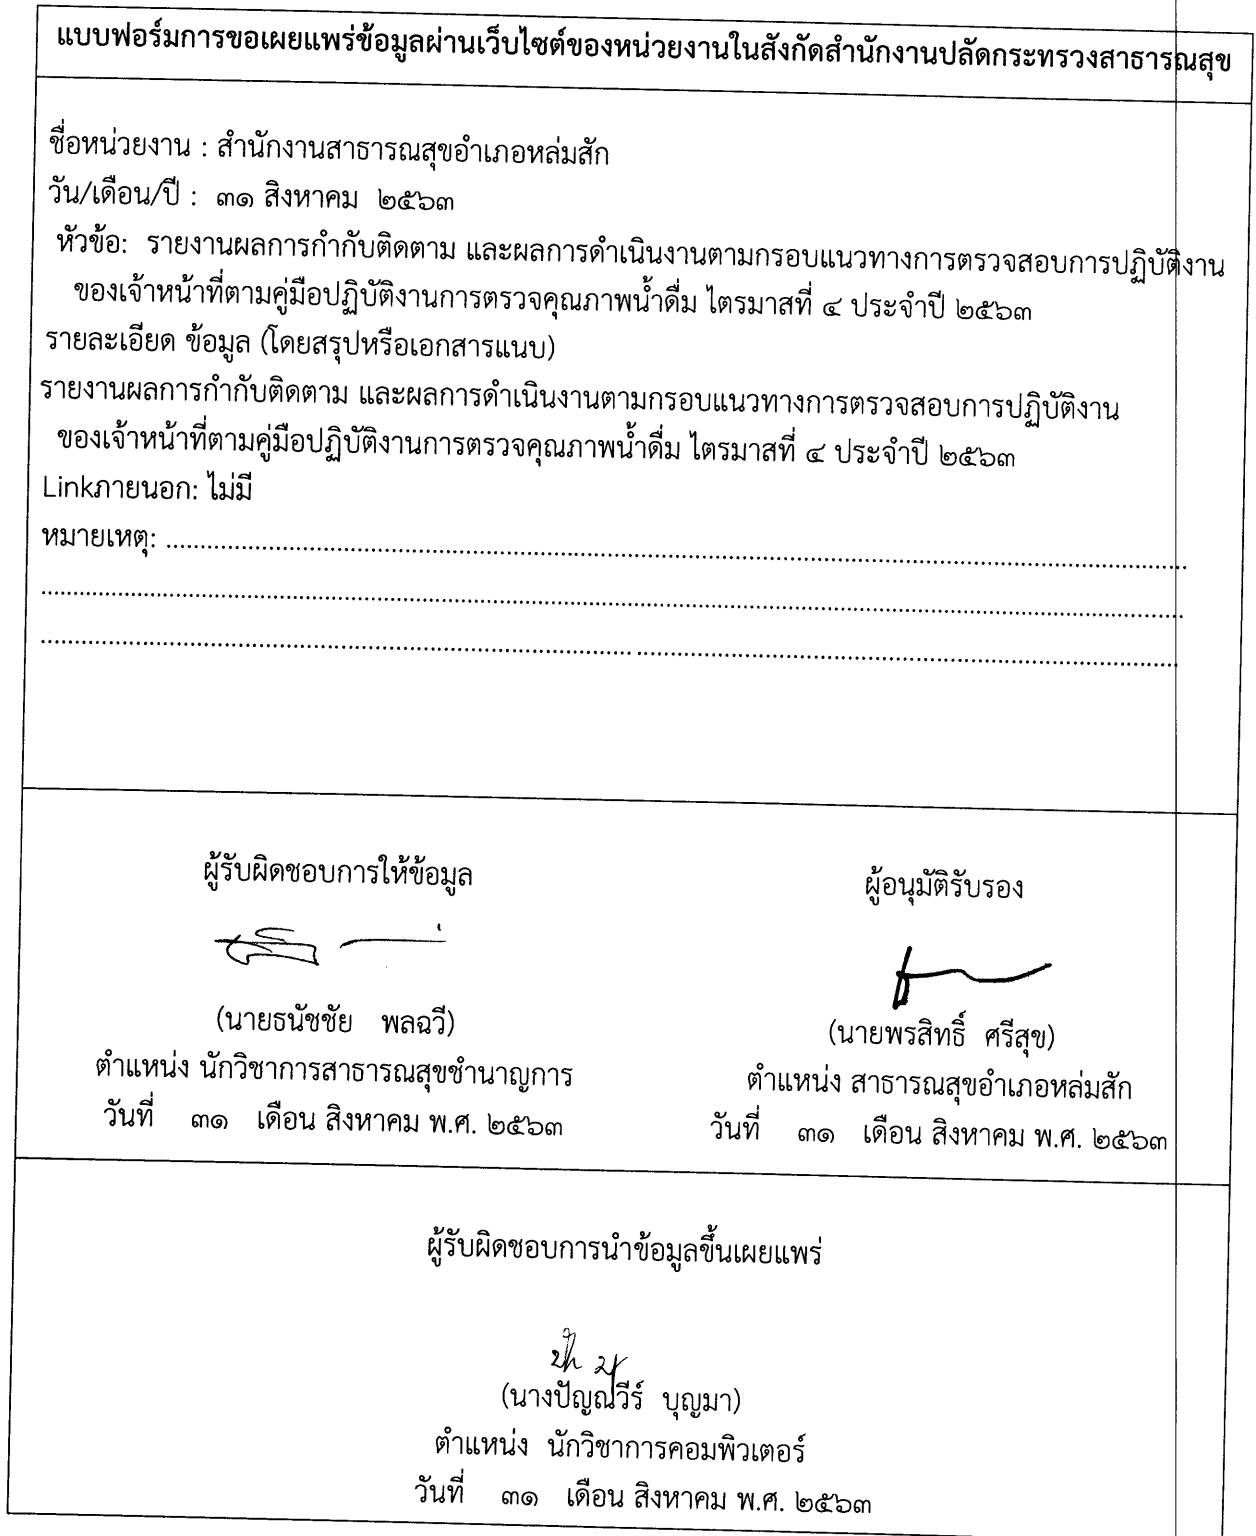 แบบฟอร์มการขอเผยแพร่ข้อมูลผ่านเว็บไซต์ของหน่วยงานในสังกัดสำนักงานปลัดกระทรวงสาธารณสุข
ชื่อหน่วยงาน : สำนักงานสาธารณสุขอำเภอหล่มสัก
วัน/เดือน/ปี : ๓๑ สิงหาคม ๒๕๖๓
หัวข้อ: รายงานผลการกำกับติดตาม และผลการดำเนินงานตามกรอบแนวทางการตรวจสอบการปฏิบัติงาน
ของเจ้าหน้าที่ตามคู่มือปฏิบัติงานการตรวจคุณภาพน้ำดื่ม ไตรมาสที่ ๔ ประจำปี ๒๕๖๓
รายละเอียด ข้อมูล (โดยสรุปหรือเอกสารแนบ)
รายงานผลการกำกับติดตาม และผลการดำเนินงานตามกรอบแนวทางการตรวจสอบการปฏิบัติงาน
ของเจ้าหน้าที่ตามคู่มือปฏิบัติงานการตรวจคุณภาพน้ำดื่ม ไตรมาสที่ ๔ ประจำปี ๒๕๖๓
Linkภายนอก: ไม่มี
หมายเหตุ:
ผู้รับผิดชอบการให้ข้อมูล
(นายธนัชชัย พลฉวี)
ตำแหน่ง นักวิชาการสาธารณสุขชำนาญการ
วันที่ ๓๑ เดือน สิงหาคม พ.ศ. ๒๕๖๓
ผู้อนุมัติรับรอง
(นายพรสิทธิ์ ศรีสุข)
ตำแหน่ง สาธารณสุขอำเภอหล่มสัก
วันที่ ๓๑ เดือน สิงหาคม พ.ศ. ๒๕๖๓
ผู้รับผิดชอบการนำข้อมูลขึ้นเผยแพร่
(นางปัญณวีร์ บุญมา)
ตำแหน่ง นักวิชาการคอมพิวเตอร์
วันที่ ๓๑ เดือน สิงหาคม พ.ศ. ๒๕๖๓